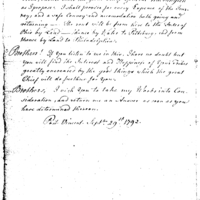 as I propose. I shall provide for every Expence of the Jour-
neys and a safe Convoy and accomodation both going and
returning — We will go from here to the Falls of
Ohio by Land — thence by Water to Pittsburg, and from
thence by Land to Philadelphia.
Brothers! If you listen to me in this, I have no doubt but
you will find the Interest and Happiness of your Tribes
greatly encreased by the good things which the great
Chief will do further for you.
Brothers, I wish you to take my Words into Con-
sideration and return me an Answer as soon as you
have determined thereon.
Post Vincent Septr. 29th 1792.